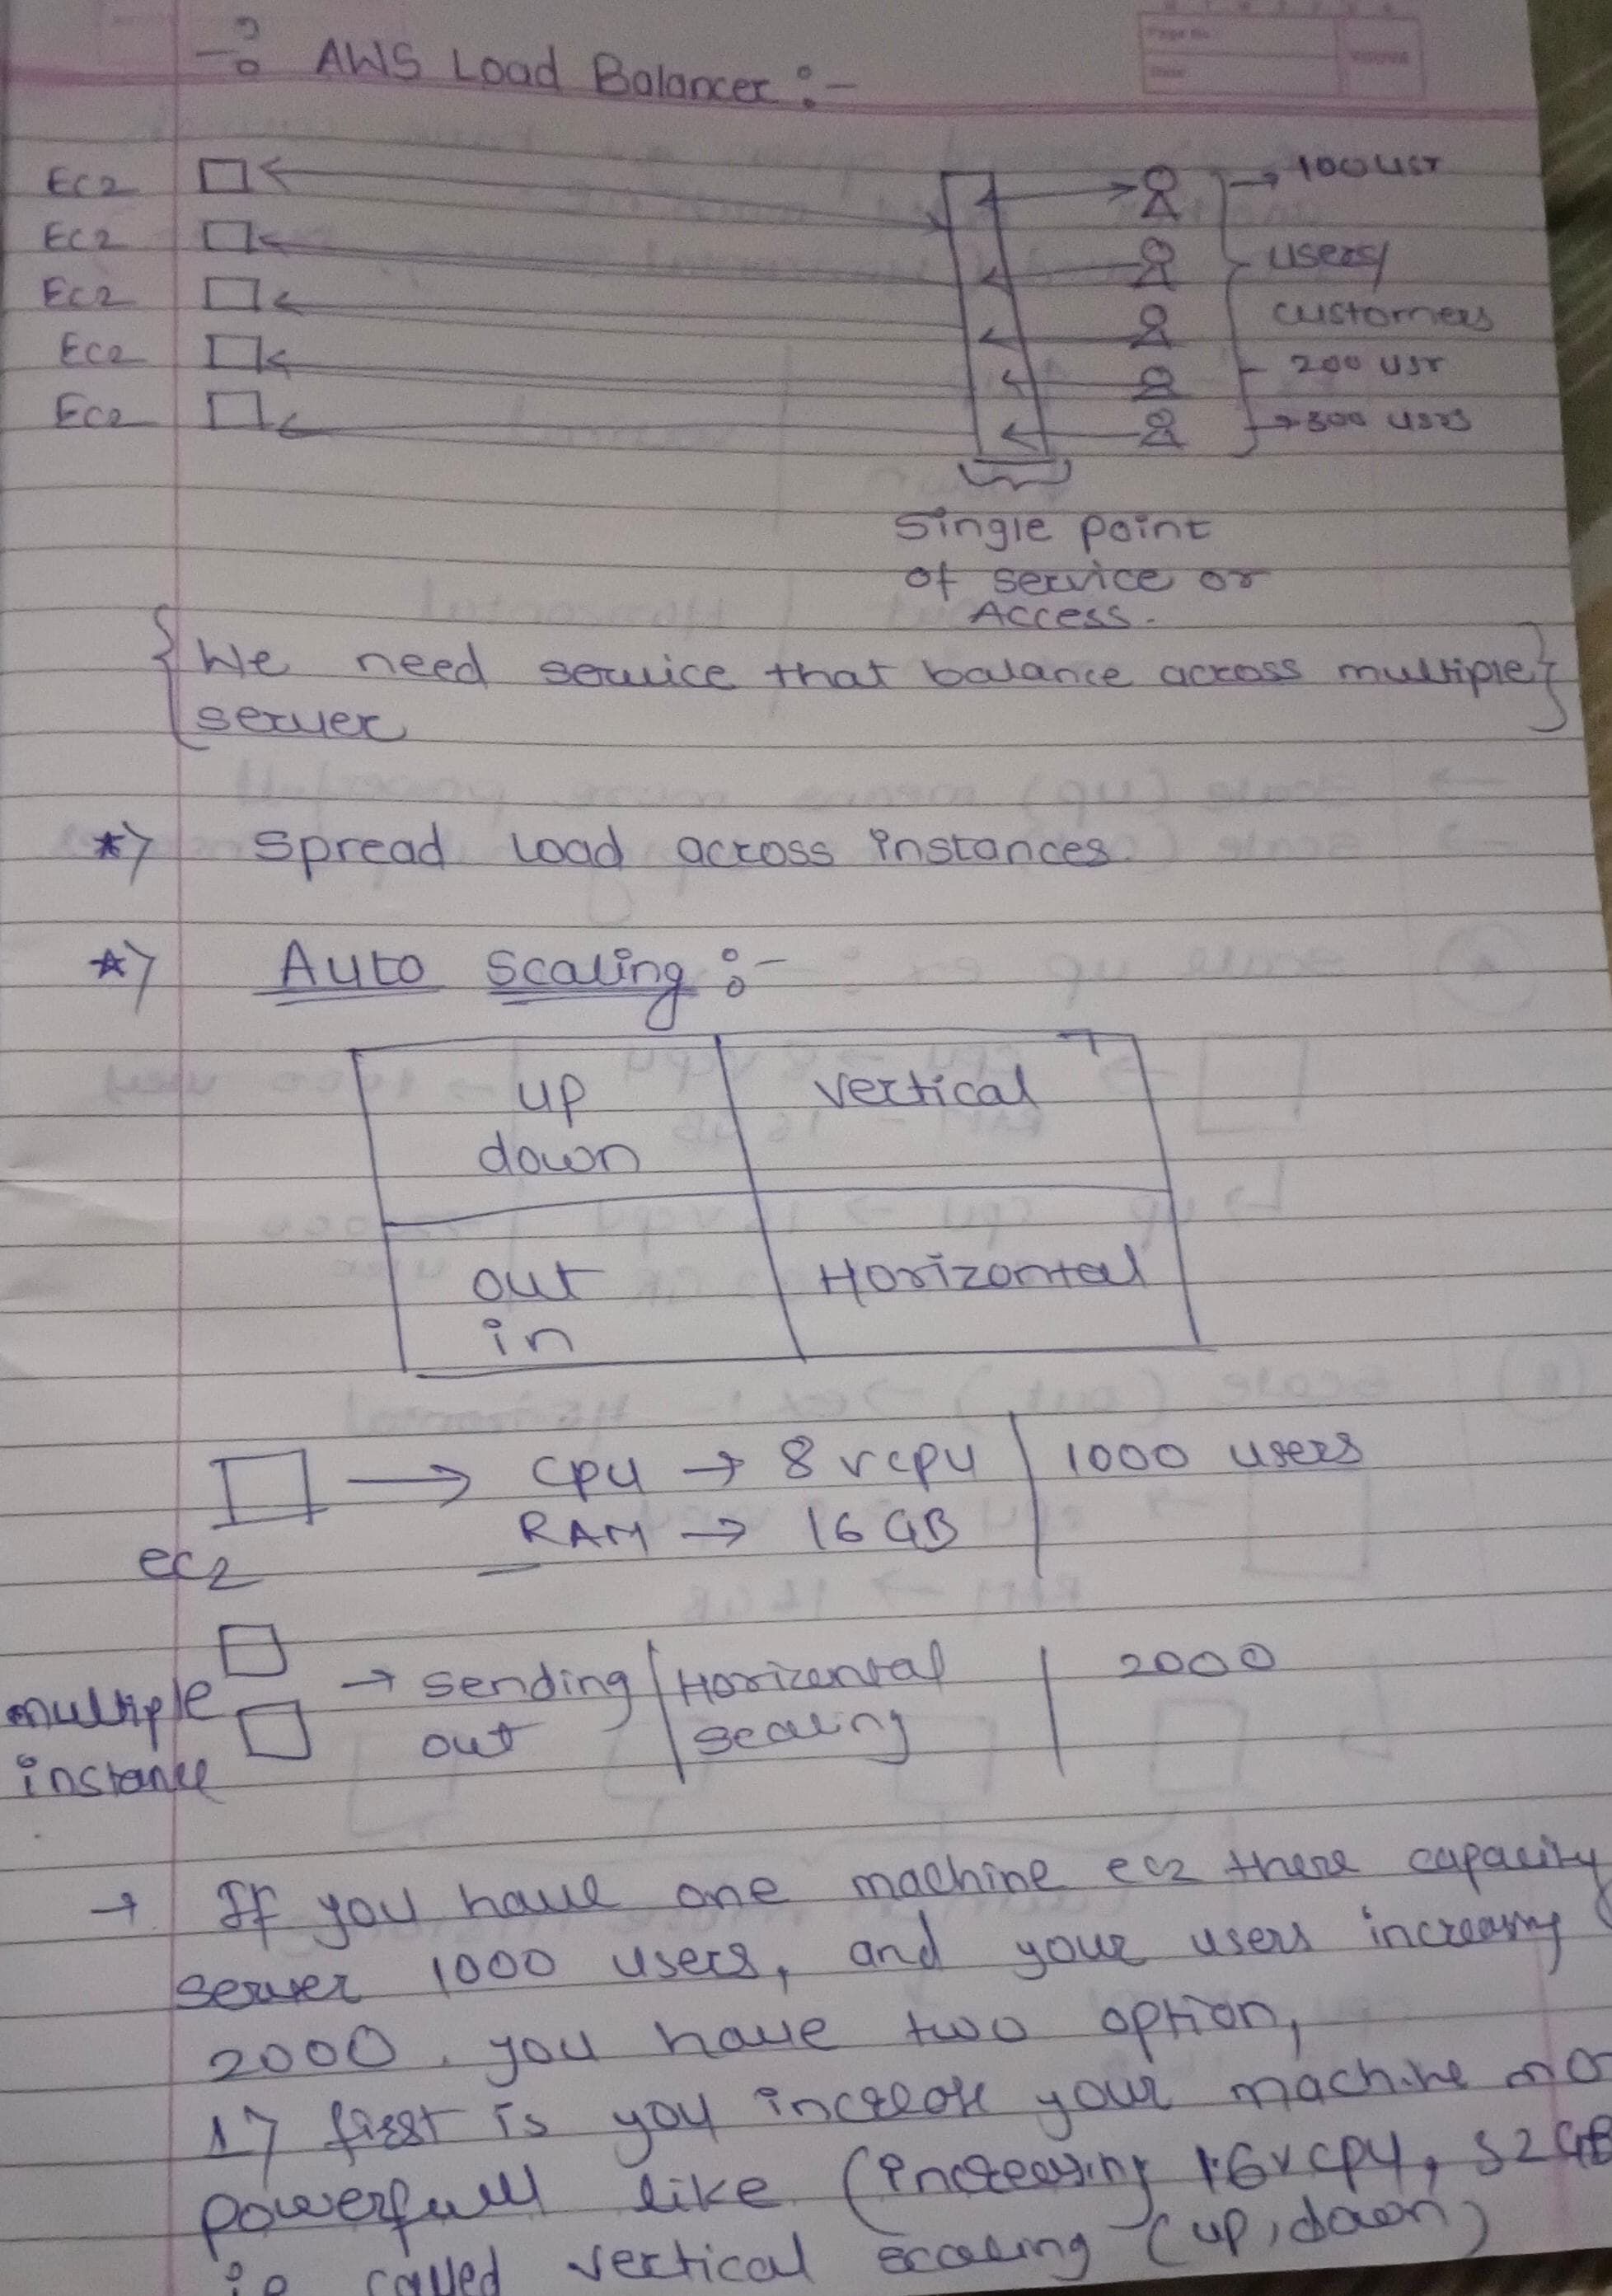 AWS Load Balancer :-
EC2
EC2
EC2
EC2
EC2
→ 100 usr
users/
customers
200 usr
→ 300 usrs
Single point
of service or
Access.
{ We need service that balance across multiple }
server
*> Spread Load across instances.
*> Auto scaling :-
up vertical
down
out Horizontal
in
→ cpu → 8 vcpu | 1000 users
RAM → 16 GB
ec2
multiple → sending | Horizental | 2000
instance out | scaling
→ If you have one machine ec2 there capacity
server 1000 users, and your users increasing
2000. you have two option,
1> first is you increase your machine mo
powerfull like (increasing 16vcpu, 32GB
is called vertical scaling (up, down)